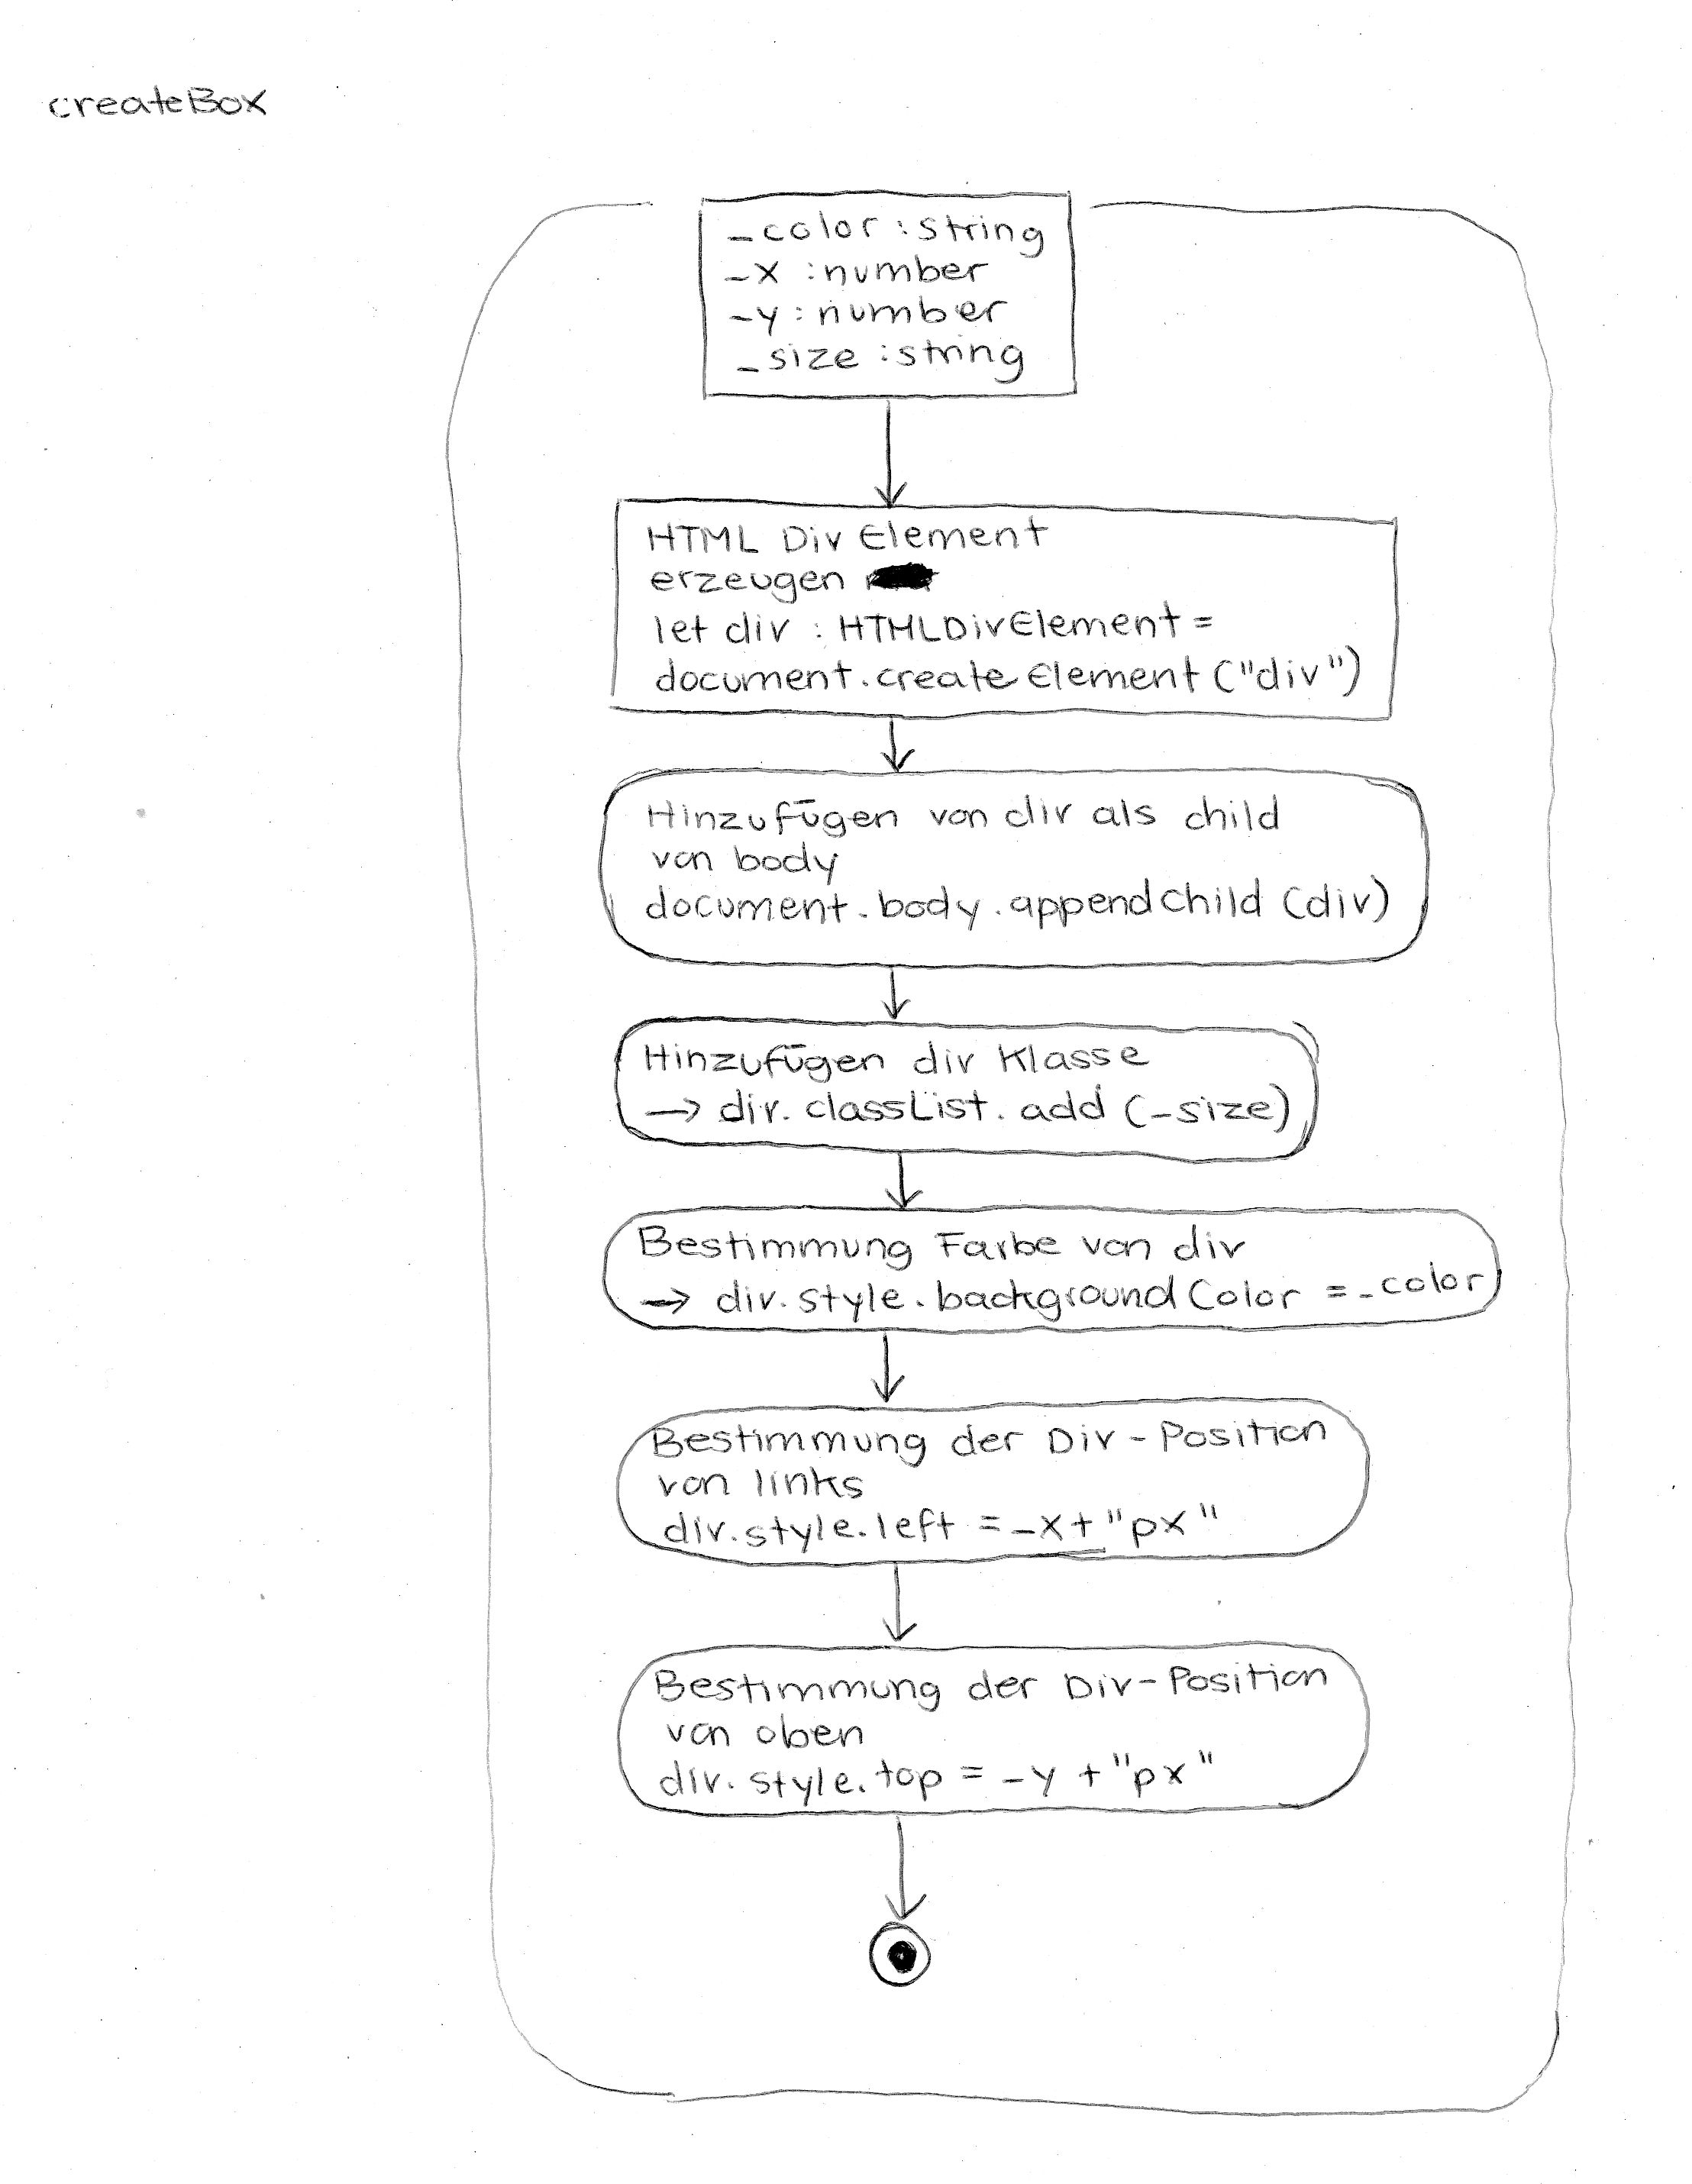 createBox
_color : string
_x : number
_y : number
_size : string
HTML Div Element
erzeugen
let div : HTMLDivElement =
document.createElement ("div")
Hinzufügen von div als child
von body
document.body.appendChild (div)
Hinzufügen div Klasse
→ div.classList.add (_size)
Bestimmung Farbe von div
→ div.style.backgroundColor = _color
Bestimmung der Div-Position
von links
div.style.left = _x + "px"
Bestimmung der Div-Position
von oben
div.style.top = _y + "px"